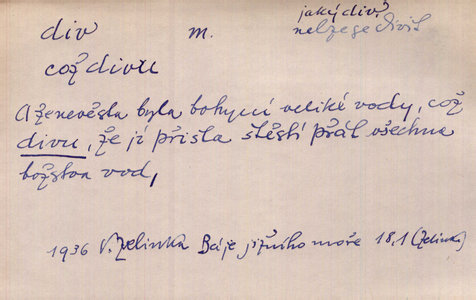 div m. jaký div?
nelze se diviť
což divu
A že nevěsta byla bohyní veliké vody, což
divu, že jí přišla štěstí přát všechna
božstva vod,
1936 V. Zelinka Báje jižního moře 18,1 (Zelinka)